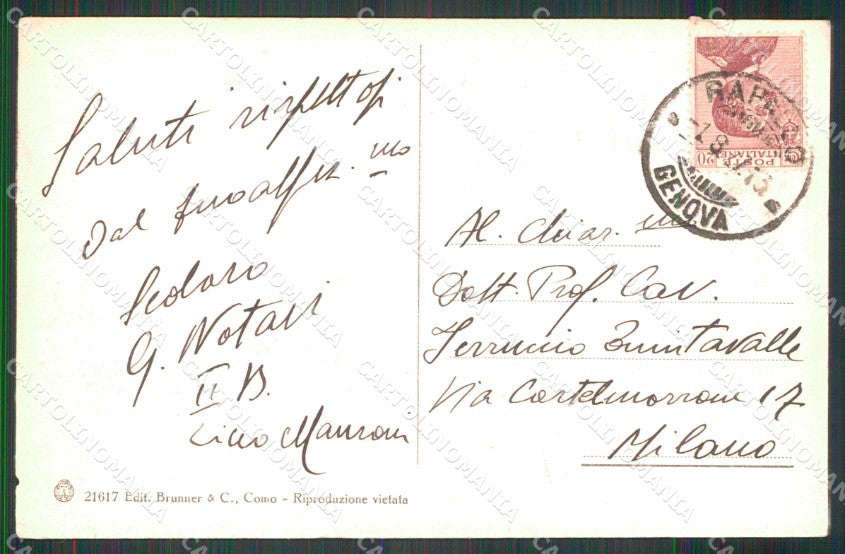 Saluti rispettosi
mo
dal suo aff.
Scolaro
G. Notari
II B.
Liceo Manzoni
21617 Edit. Brunner & C., Como - Riproduzione vietata
POSTE
ITALIANE
20
RAPALLO
GENOVA
Al Chiar. mo
Dott. Prof. Cav.
Ferruccio Quintavalle
Via Castelmorrone 17
Milano
CARTOLINOMANIA